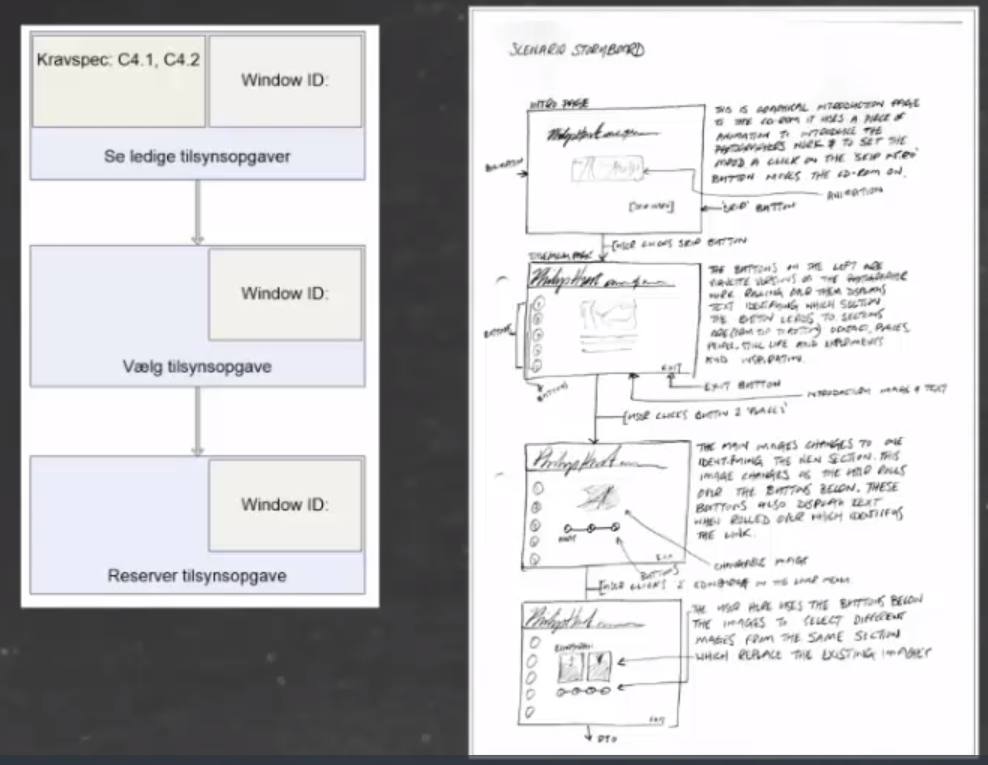 Kravspec: C4.1, C4.2
Window ID:
Se ledige tilsynsopgaver
Window ID:
Vælg tilsynsopgave
Window ID:
Reserver tilsynsopgave
SCENARIO STORYBOARD
INTRO PAGE
THIS IS GRAPHICAL INTRODUCTION PAGE
TO THE CD-ROM IT USES A PIECE OF
ANIMATION TO INTRODUCE THE
PHOTOGRAPHERS WORK & TO SET THE
MOOD A CLICK ON THE 'SKIP INTRO'
BUTTON MOVES THE CD-ROM ON.
ANIMATION
[SKIP INTRO]
'SKIP' BUTTON
USER CLICKS SKIP BUTTON
THE BUTTONS ON THE LEFT ARE
VERSIONS OF THE PHOTOGRAPHER
WORK ROLLING OVER THEM DISPLAYS
TEXT IDENTIFYING WHICH SECTION
THE BUTTON LEADS TO SECTIONS
ARE PLACES,
PEOPLE, STILL LIFE AND EXPERIMENTS
AND INSPIRATION.
BUTTONS
EXIT
BUTTONS
EXIT BUTTON
INTRODUCTION IMAGE & TEXT
USER CLICKS BUTTON 2 'PLACES'
THE MAIN IMAGES CHANGES TO ONE
IDENTIFYING THE NEW SECTION. THIS
IMAGE CHANGES AS THE USER ROLLS
OVER THE BUTTONS BELOW. THESE
BUTTONS ALSO DISPLAY TEXT
WHEN ROLLED OVER WHICH IDENTIFIES
THE LINK.
EXIT
CHANGEABLE IMAGE
BUTTONS
USER CLICKS IN THE MENU
THE USER HERE USES THE BUTTONS BELOW
THE IMAGES TO SELECT DIFFERENT
IMAGES FROM THE SAME SECTION
WHICH REPLACE THE EXISTING IMAGES
EXIT
PTO